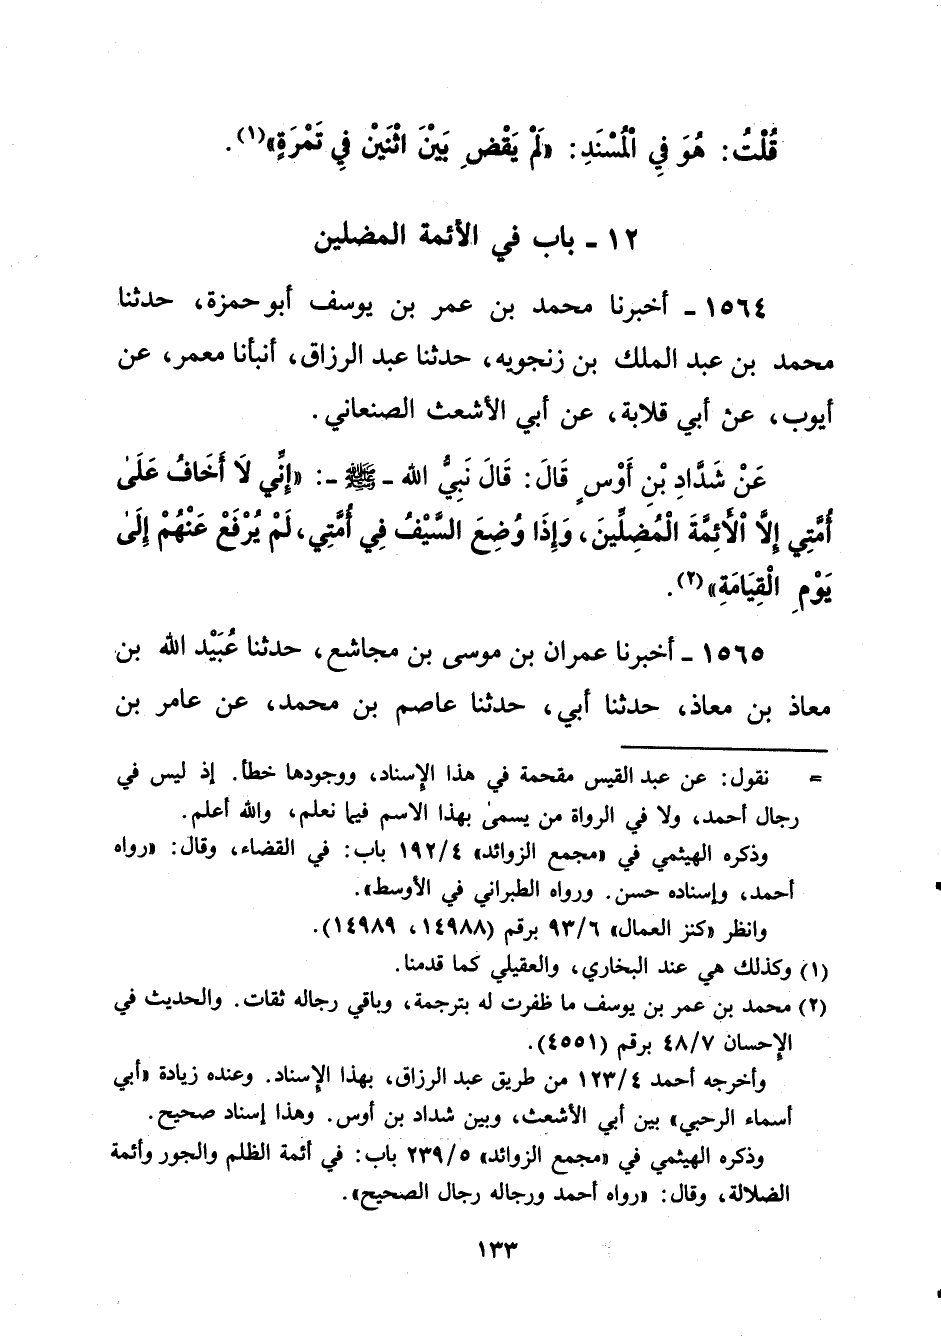 قُلْتُ: هُوَ فِي الْمُسْنَدِ: «لَمْ يَقْضِ بَيْنَ اثْنَيْنِ فِي تَمْرَةٍ»(١).
١٢ ـ باب في الأئمة المضلين
١٥٦٤ ـ أخبرنا محمد بن عمر بن يوسف أبو حمزة، حدثنا
محمد بن عبد الملك بن زنجويه، حدثنا عبد الرزاق، أنبأنا معمر، عن
أيوب، عن أبي قلابة، عن أبي الأشعث الصنعاني.
عَنْ شَدَّادِ بْنِ أَوْسٍ قَالَ: قَالَ نَبِيُّ الله ـ ﷺ ـ: «إِنِّي لَا أَخَافُ عَلَىٰ
أُمَّتِي إِلَّا الْأَئِمَّةَ الْمُضِلِّينَ، وَإِذَا وُضِعَ السَّيْفُ فِي أُمَّتِي، لَمْ يُرْفَعْ عَنْهُمْ إِلَىٰ
يَوْمِ الْقِيَامَةِ»(٢).
١٥٦٥ ـ أخبرنا عمران بن موسى بن مجاشع، حدثنا عُبَيْد الله بن
معاذ بن معاذ، حدثنا أبي، حدثنا عاصم بن محمد، عن عامر بن
= نقول: عن عبد القيس مقحمة في هذا الإسناد، ووجودها خطأ. إذ ليس في
رجال أحمد، ولا في الرواة من يسمىٰ بهذا الاسم فيما نعلم، والله أعلم.
وذكره الهيثمي في «مجمع الزوائد» ٤/١٩٢ باب: في القضاء، وقال: «رواه
أحمد، وإسناده حسن. ورواه الطبراني في الأوسط».
وانظر «كنز العمال» ٦/٩٣ برقم (١٤٩٨٨، ١٤٩٨٩).
(١) وكذلك هي عند البخاري، والعقيلي كما قدمنا.
(٢) محمد بن عمر بن يوسف ما ظفرت له بترجمة، وباقي رجاله ثقات. والحديث في
الإحسان ٧/٤٨ برقم (٤٥٥١).
وأخرجه أحمد ٤/١٢٣ من طريق عبد الرزاق، بهذا الإسناد. وعنده زيادة «أبي
أسماء الرحبي» بين أبي الأشعث، وبين شداد بن أوس. وهذا إسناد صحيح.
وذكره الهيثمي في «مجمع الزوائد» ٥/٢٣٩ باب: في أئمة الظلم والجور وأئمة
الضلالة، وقال: «رواه أحمد ورجاله رجال الصحيح».
١٣٣